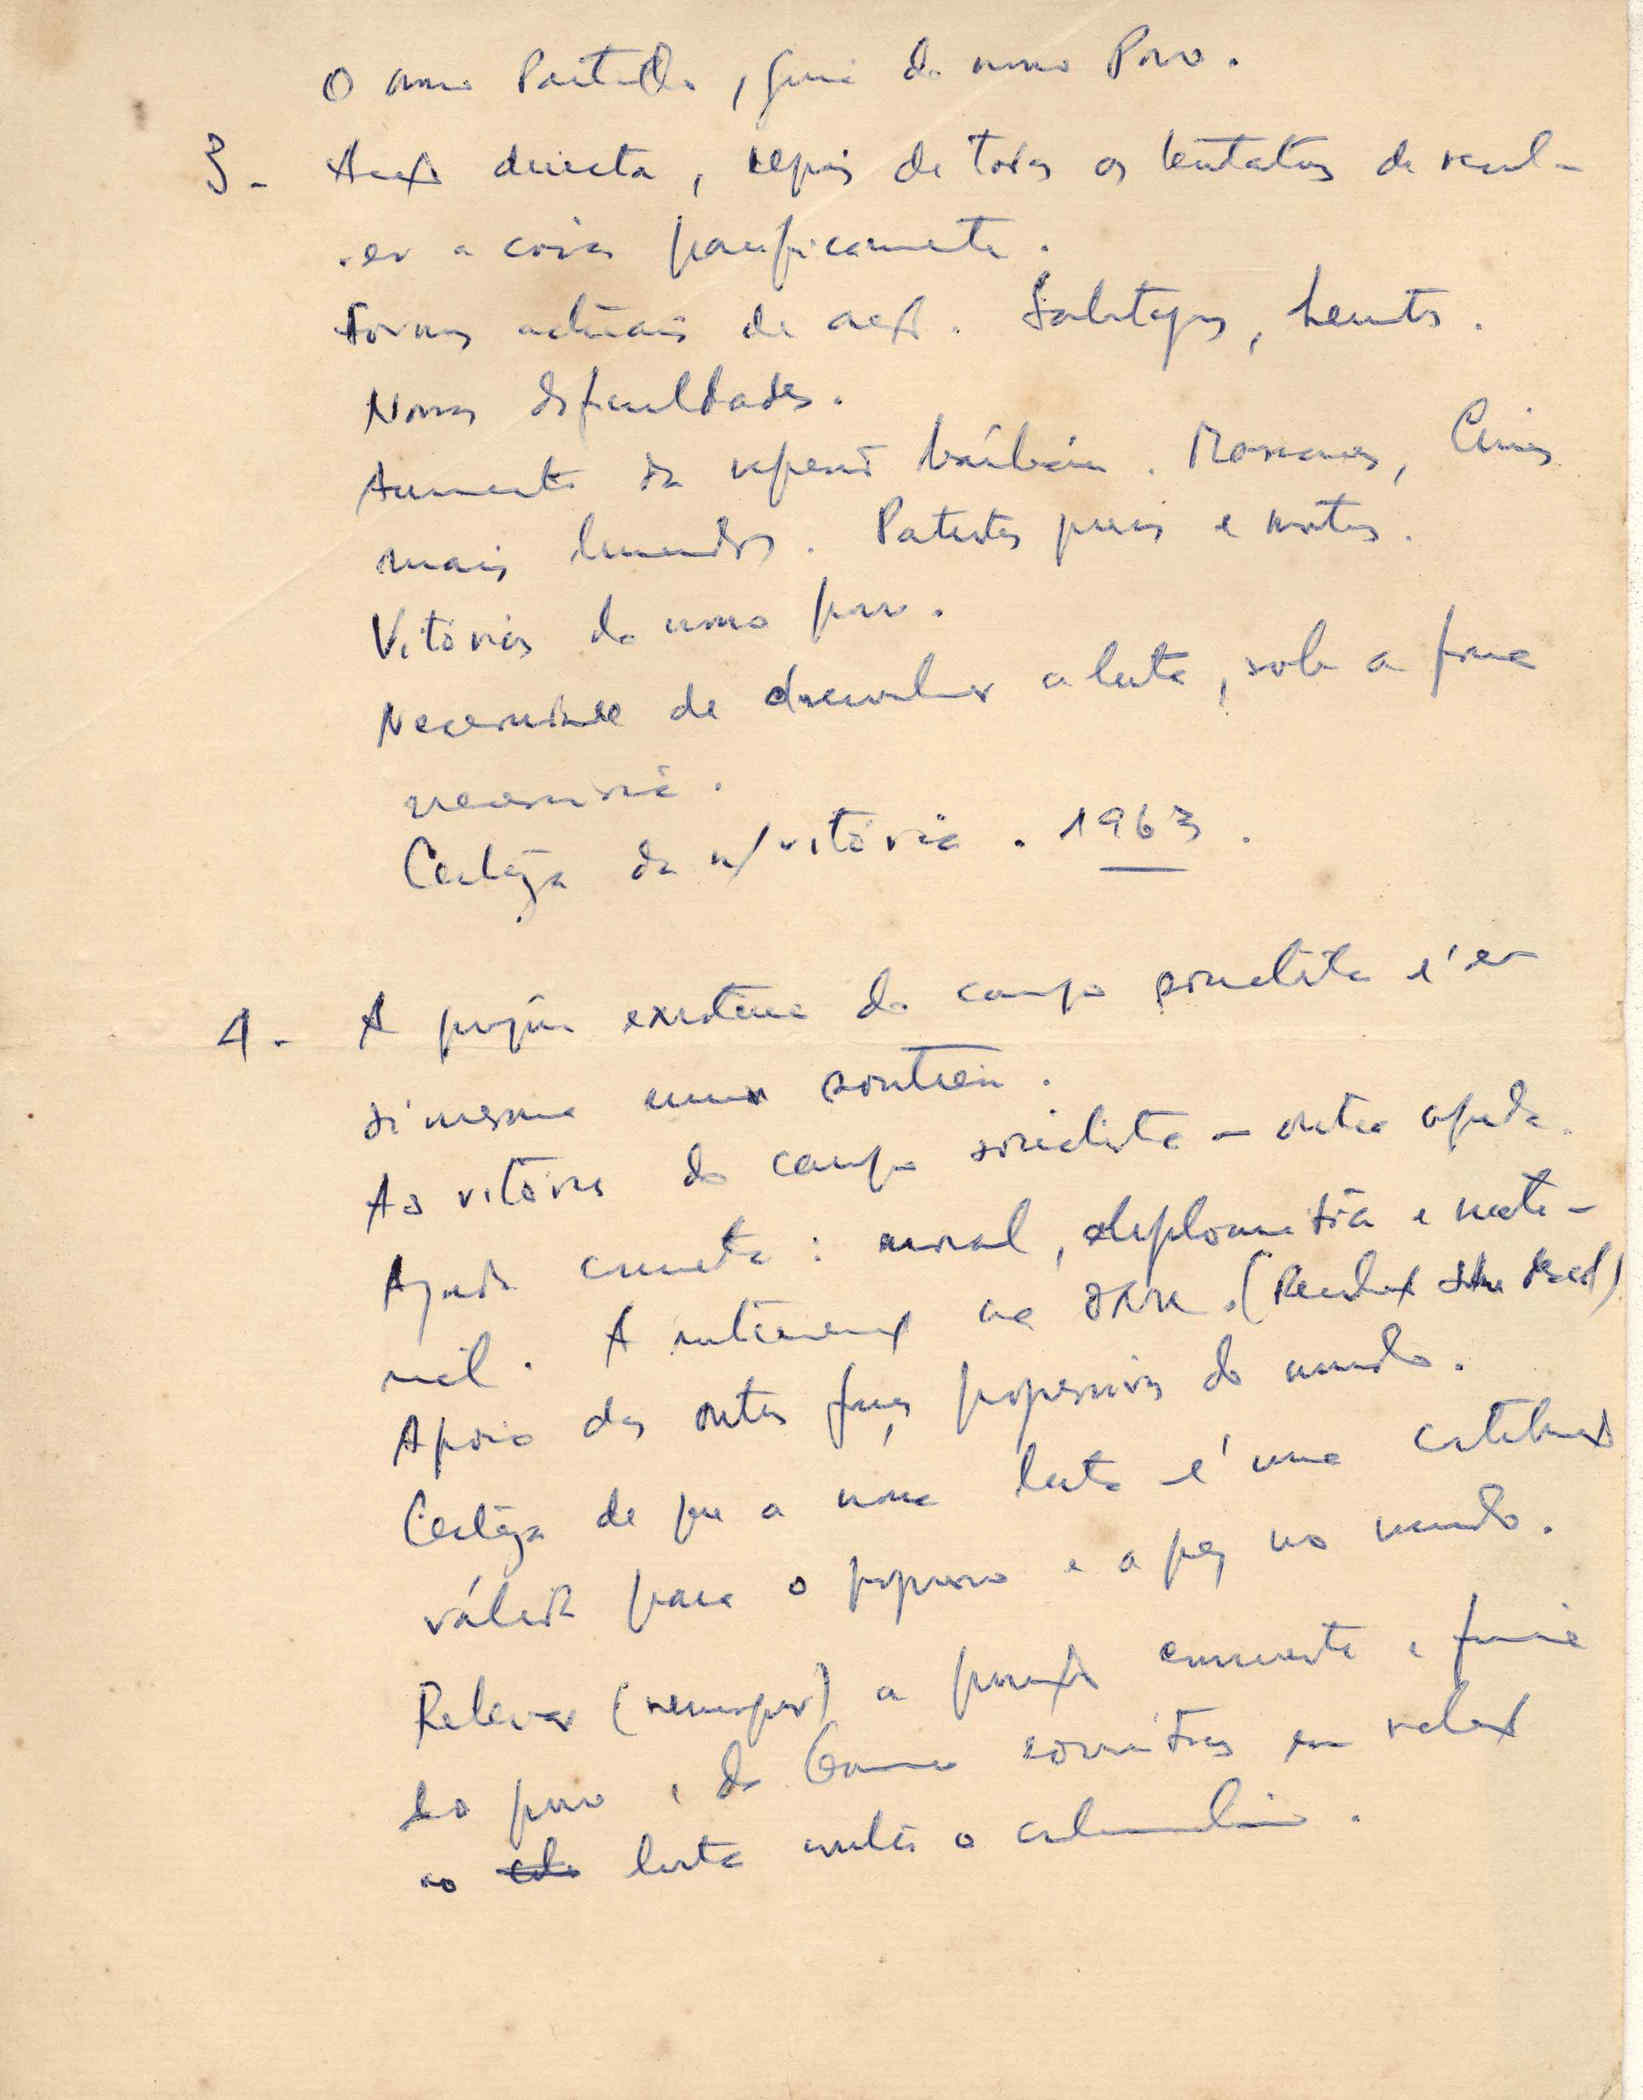 O nosso Partido, guia do nosso Povo.
3 - Acção directa, depois de todas as tentativas de resol-
ver a coisa pacificamente.
Formas actuais de acção. Sabotagens,
Novas dificuldades.
Aumento da repressão bárbara. Massacres, Crimes
mais hediondos. Patriotas presos e mortos.
Vitórias do nosso povo.
Necessidade de desenvolver a luta, sob a forma
necessária.
Certeza da n/ vitória. 1963.
4 - A própria existência do campo socialista é em
si mesma
As vitórias do campo socialista - outra ajuda.
Ajuda concreta: moral, diplomática e mate-
rial. A intervenção na ONU. (Resolução
Apoio das outras forças progressivas do mundo.
Certeza de que a nossa luta é uma contribuição
válida para o progresso e a paz no mundo.
Relevar a posição consequente e firme
do povo e do Governo soviéticos em relação
ao luta contra o colonialismo.